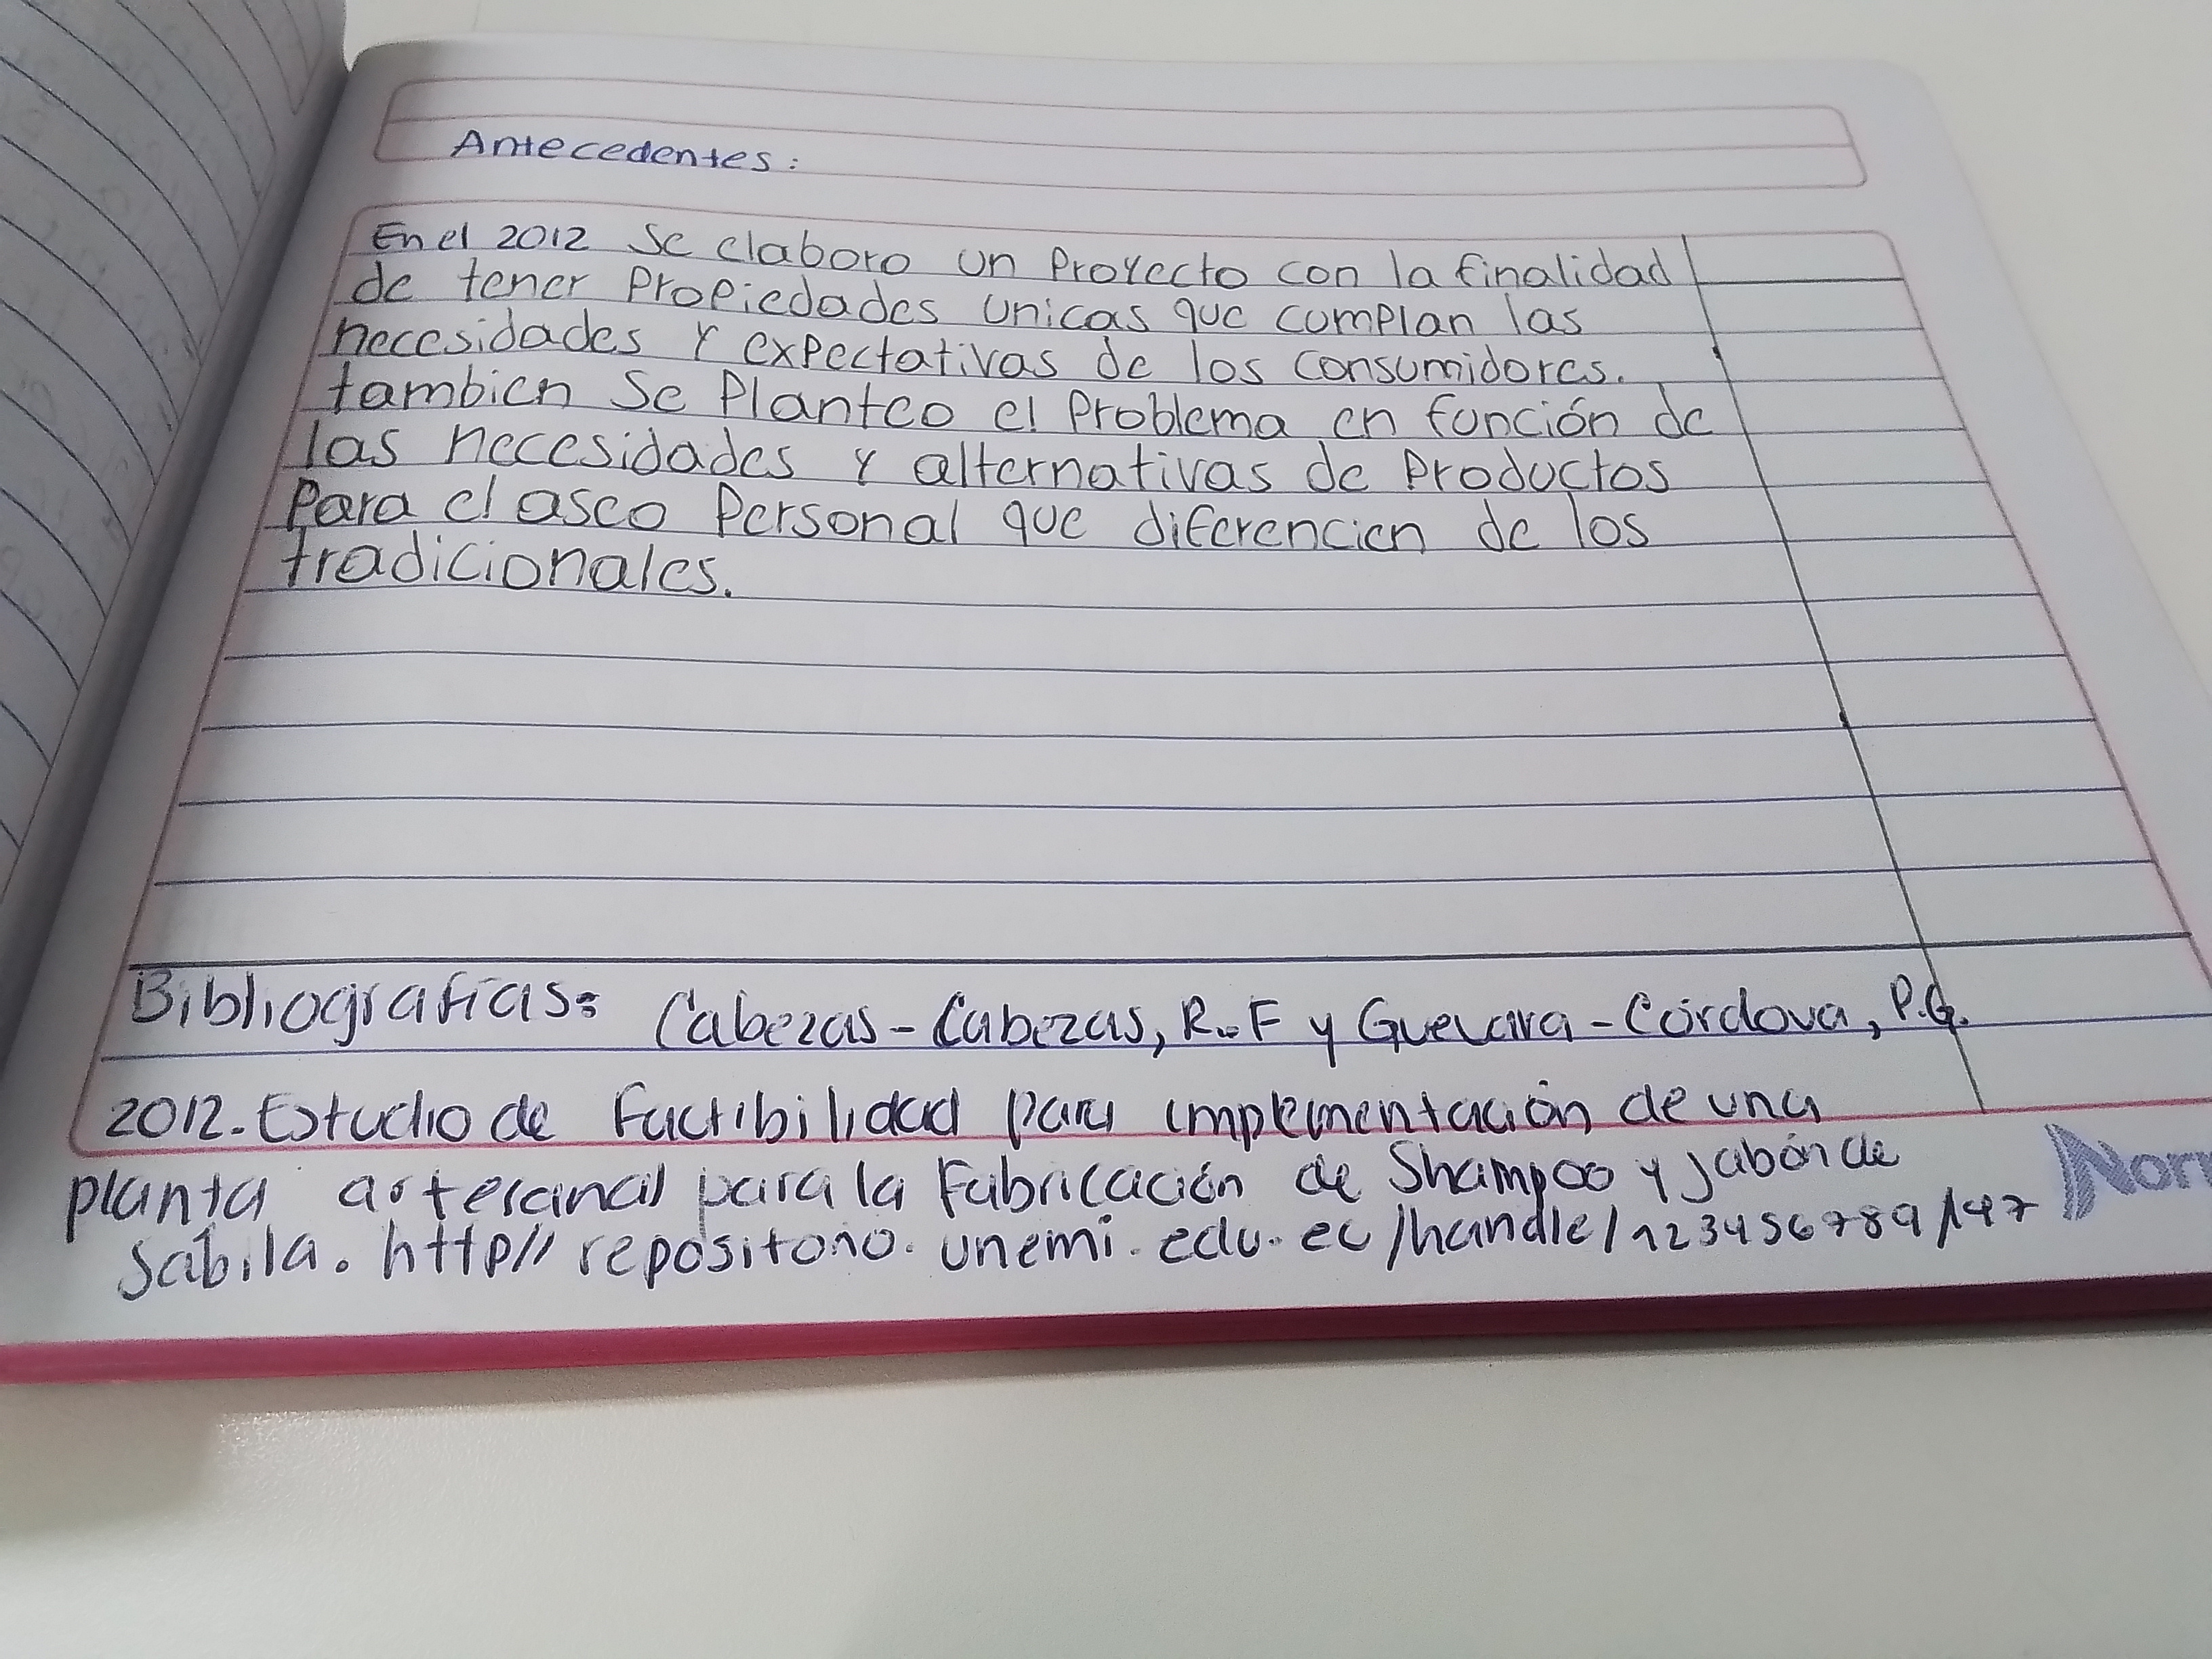 Antecedentes:
En el 2012 Se elaboro un Proyecto con la finalidad
de tener Propiedades unicas que cumplan las
necesidades y expectativas de los consumidores.
tambien Se Planteo el Problema en función de
las necesidades y alternativas de Productos
Para el aseo Personal que diferencien de los
tradicionales.
Bibliografias: Cabezas-Cabezas, R.F y Guevara-Córdova, P.G.
2012. Estudio de Factibilidad para implementación de una
planta artesanal para la Fabricación de Shampoo y jabón de
Sábila. http// repositorio. unemi. edu. ec /handle/123456789/147
Nor